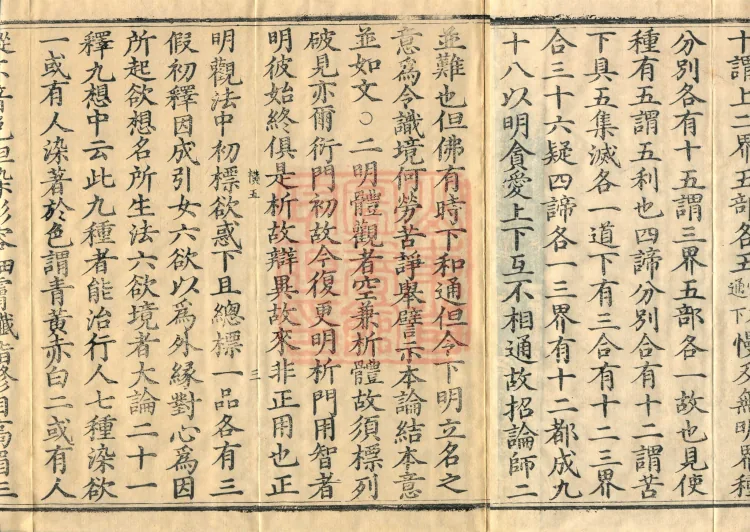 十謂上二界五部各五通下慢及無明界種
分別各有十五謂三界五部各一故也見使
種有五謂五利也四諦分別合有十二謂苦
下具五集滅各一道下有三合有十二三界
合三十六疑四諦各一三界有十二都成九
十八以明貪愛上下互不相通故招論師二
並難也但佛有時下和通但令下明立名之
意為令識境何勞苦諍舉譬示本論結本意
並如文○二明體觀者空兼析體故須標列
破見亦爾衍門初故今復更明析門用智者
明彼始終俱是析故辯異故來非正用也正
横五
三
明觀法中初標欲惑下且總標一品各有三
假初釋因成引女六欲以為外緣對心為因
所起欲想名所生法六欲境者大論二十一
釋九想中云此九種者能治行人七種染欲
一或有人染著於色謂青黃赤白二或有人